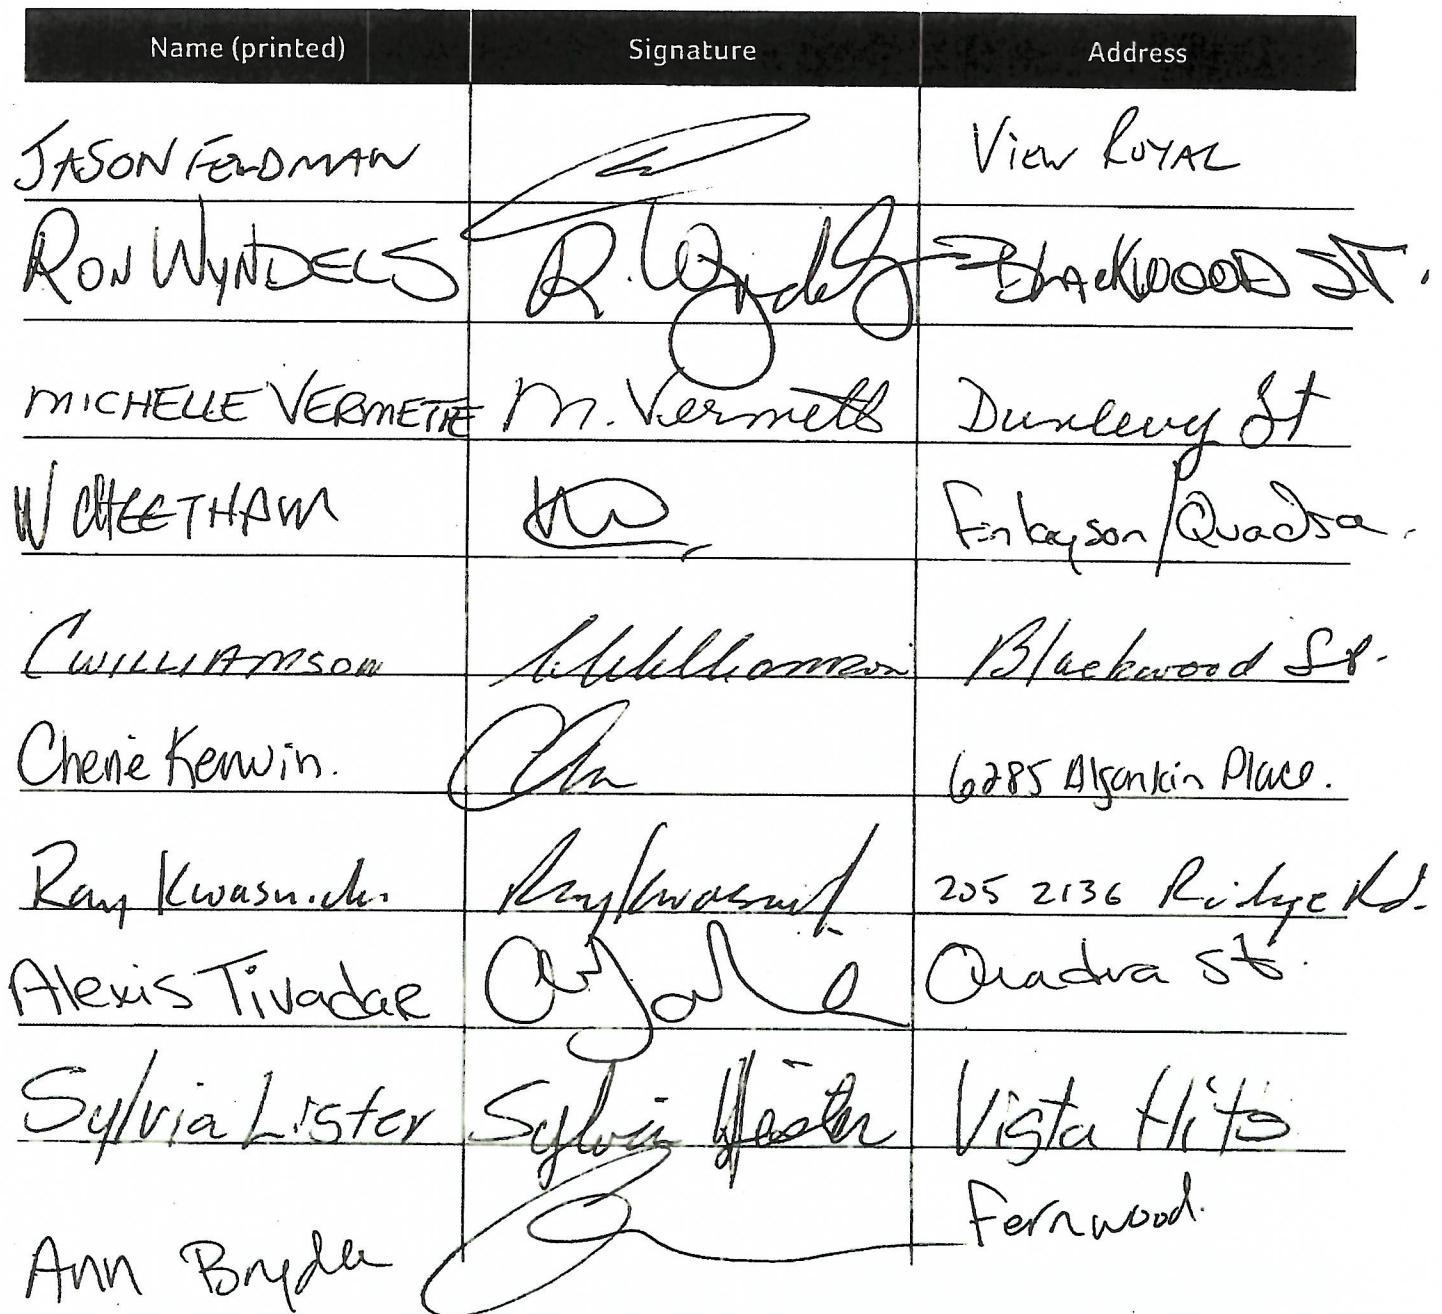 Name (printed) Signature Address
JASON FELDMAN View ROYAL
RON WYNDELS R. Wyndels BLACKWOOD ST.
MICHELLE VERMETTE M. Vermette Dunlevy St
W CHEETHAM Finlayson/Quadra.
C WILLIAMSON CWilliamson Blackwood St.
Cherie Kerwin. 6285 Algonkin Place.
Ray Kwasnicki. Ray Kwasnicki 205 2136 Ridge Rd.
Alexis Tivadar Quadra St.
Sylvia Lister Sylvia Lister Vista Hits
Fernwood.
Ann Bryden